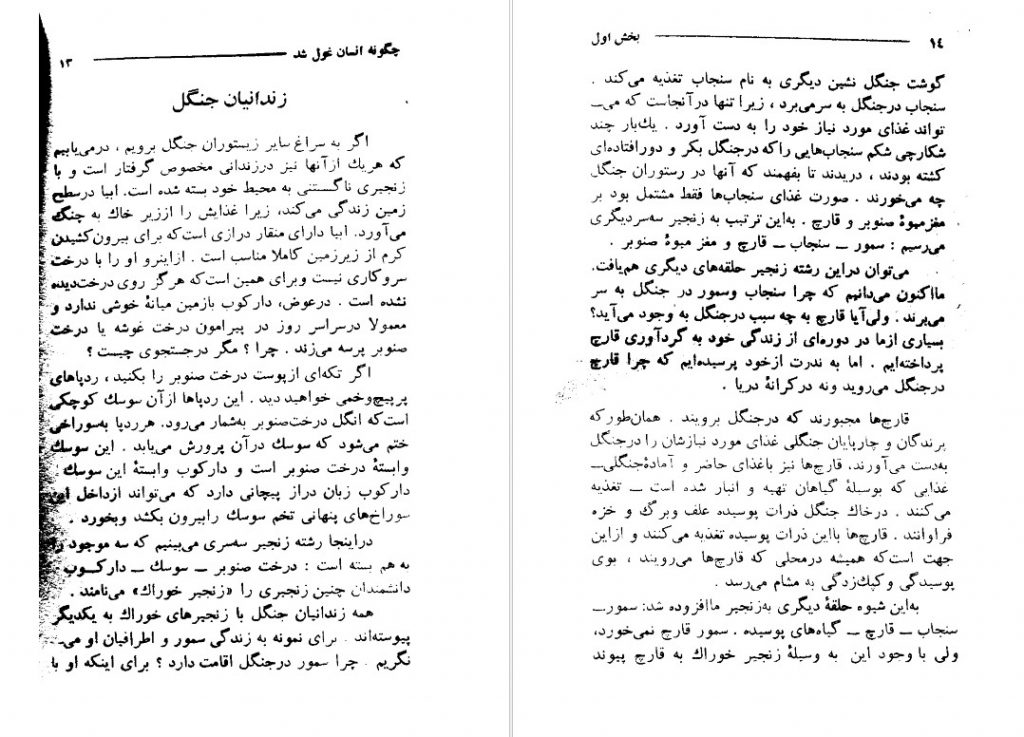 چگونه انسان غول شد ۱۳
زندانیان جنگل
اگر به سراغ سایر زیستوران جنگل برویم ، درمی‌یابیم
که هریك ازآنها نیز درزندانی مخصوص گرفتار است و با
زنجیری ناگستنی به محیط خود بسته شده است. ابیا درسطح
زمین زندگی می‌کند، زیرا غذایش را اززیر خاك به چنگ
می‌آورد. ابیا دارای منقار درازی است‌که برای بیرون‌کشیدن
کرم از زیرزمین کاملا مناسب است . ازاینرو او را با درخت
سروکاری نیست وبرای همین است‌که هرگز روی درخت‌دیده
نشده است . درعوض، دارکوب بازمین میانهٔ خوشی ندارد و
معمولا درسراسر روز در پیرامون درخت غوشه یا درخت
صنوبر پرسه می‌زند . چرا ؟ مگر درجستجوی چیست ؟
اگر تکه‌ای ازپوست درخت صنوبر را بکنید ، ردپاهای
پرپیچ‌وخمی خواهید دید . این ردپاها ازآن سوسك کوچکی
است‌که انگل درخت‌صنوبر به‌شمار می‌رود. هرردپا به‌سوراخی
ختم می‌شود که سوسك درآن پرورش می‌یابد . این سوسك
وابستهٔ درخت صنوبر است و دارکوب وابستهٔ این سوسك :
دارکوب زبان دراز پیچانی دارد که می‌تواند ازداخل این
سوراخ‌های پنهانی تخم سوسك رابیرون بکشد وبخورد .
دراینجا رشته زنجیر سه‌سری می‌بینیم که سه موجود را
به هم بسته است : درخت صنوبر ــ سوسك ــ دارکــوب
دانشمندان چنین زنجیری را «زنجیر خوراك» می‌نامند .
همه زندانیان جنگل با زنجیرهای خوراك به یکدیگر
پیوسته‌اند . برای نمونه به زندگی سمور و اطرافیان او می‌ـ
نگریم . چرا سمور درجنگل اقامت دارد ؟ برای اینکه او با
۱۴ بخش اول
گوشت جنگل نشین دیگری به نام سنجاب تغذیه می‌کند .
سنجاب درجنگل به سرمی‌برد ، زیرا تنها درآنجاست که می‌ــ
تواند غذای مورد نیاز خود را به دست آورد . یك‌بار چند
شکارچی شکم سنجاب‌هایی راکه درجنگل بکر و دورافتاده‌ای
کشته بودند ، دریدند تا بفهمند که آنها در رستوران جنگل
چه می‌خورند . صورت غذای سنجاب‌ها فقط مشتمل بود بر
مغزمیوهٔ صنوبر و قارچ . به‌این ترتیب به زنجیر سه‌سردیگری
می‌رسیم : سمور ــ سنجاب ــ قارچ و مغز میوهٔ صنوبر .
می‌توان دراین رشته زنجیر حلقه‌های دیگری هم‌یافت.
مااکنون می‌دانیم که چرا سنجاب وسمور در جنگل به سر
می‌برند . ولی‌آیا قارچ به چه سبب درجنگل به وجود می‌آید؟
بسیاری ازما در دوره‌ای از زندگی خود به گردآوری قارچ
پرداخته‌ایم . اما به ندرت ازخود پرسیده‌ایم که چرا قارچ
درجنگل می‌روید ونه درکرانهٔ دریا .
قارچ‌ها مجبورند که درجنگل برویند . همان‌طورکه
پرندگان و چارپایان جنگلی غذای مورد نیازشان را درجنگل
به‌دست می‌آورند، قارچ‌ها نیز باغذای حاضر و آمادهٔ‌جنگلی‌ــ
غذایی که بوسیلهٔ گیاهان تهیه و انبار شده است ــ تغذیه
می‌کنند . درخاك جنگل ذرات پوسیده علف وبرگ و خزه
فراوانند . قارچ‌ها بااین ذرات پوسیده تغذیه می‌کنند و ازاین
جهت است‌که همیشه درمحلی که قارچ‌ها می‌رویند ، بوی
پوسیدگی وکپك‌زدگی به مشام می‌رسد .
به‌این شیوه حلقهٔ دیگری به‌زنجیر ماافزوده شد: سمورــ
سنجاب ــ قارچ ــ گیاه‌های پوسیده . سمور قارچ نمی‌خورد،
ولی با وجود این به وسیلهٔ زنجیر خوراك به قارچ پیوند